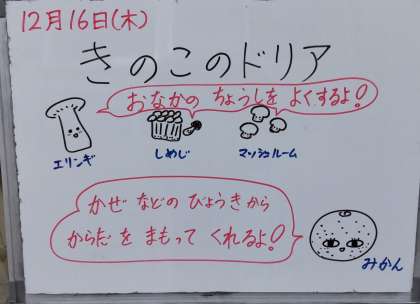 12月16日(木)
きのこのドリア
おなかの ちょうしを よくするよ!
エリンギ
しめじ
マッシュルーム
かぜ などの びょうきから
からだを まもって くれるよ!
みかん